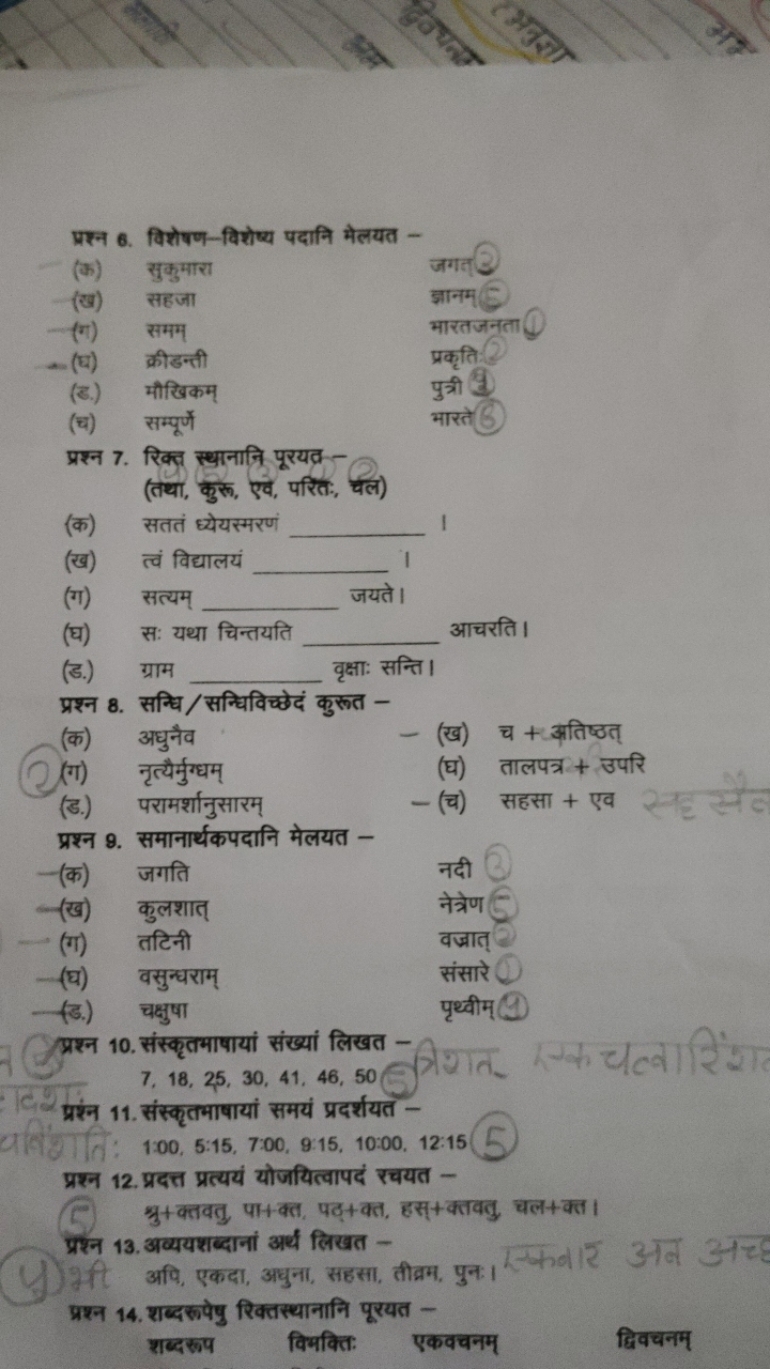 द्विवचनम्
प्रश्न 6. विशेषण–विशेष्य पदानि मेलयत –
(क) सुकुमारा जगत् 3
(ख) सहजा ज्ञानम् 5
(ग) समम् भारतजनता 1
(घ) क्रीडन्ती प्रकृतिः 2
(ड.) मौखिकम् पुत्री 4
(च) सम्पूर्णे भारते 6
प्रश्न 7. रिक्त स्थानानि पूरयत –
(तथा, कुरू, एव, परितः, चल)
(क) सततं ध्येयस्मरणं ____________ ।
(ख) त्वं विद्यालयं ____________ ।
(ग) सत्यम् ____________ जयते।
(घ) सः यथा चिन्तयति ____________ आचरति।
(ड.) ग्राम ____________ वृक्षाः सन्ति।
प्रश्न 8. सन्धि/सन्धिविच्छेदं कुरूत –
(क) अधुनैव – (ख) च + अतिष्ठत्
(ग) नृत्यैर्मुग्धम् (घ) तालपत्र + उपरि
(ड.) परामर्शानुसारम् – (च) सहसा + एव
प्रश्न 9. समानार्थकपदानि मेलयत –
(क) जगति नदी 3
(ख) कुलशात् नेत्रेण 5
(ग) तटिनी वज्रात् 2
(घ) वसुन्धराम् संसारे 1
(ड.) चक्षुषा पृथ्वीम् 4
प्रश्न 10. संस्कृतभाषायां संख्यां लिखत – त्रिंशत्
7, 18, 25, 30, 41, 46, 50 5
प्रश्न 11. संस्कृतभाषायां समयं प्रदर्शयत –
1:00, 5:15, 7:00, 9:15, 10:00, 12:15 5
प्रश्न 12. प्रदत्त प्रत्ययं योजयित्वापदं रचयत –
5 श्रु+क्तवतु, पा+क्त, पठ्+क्त, हस्+क्तवतु, चल+क्त।
प्रश्न 13. अव्ययशब्दानां अर्थं लिखत –
भी अपि, एकदा, अधुना, सहसा, तीव्रम, पुनः।
प्रश्न 14. शब्दरूपेषु रिक्तस्थानानि पूरयत –
शब्दरूप विभक्तिः एकवचनम् द्विवचनम्